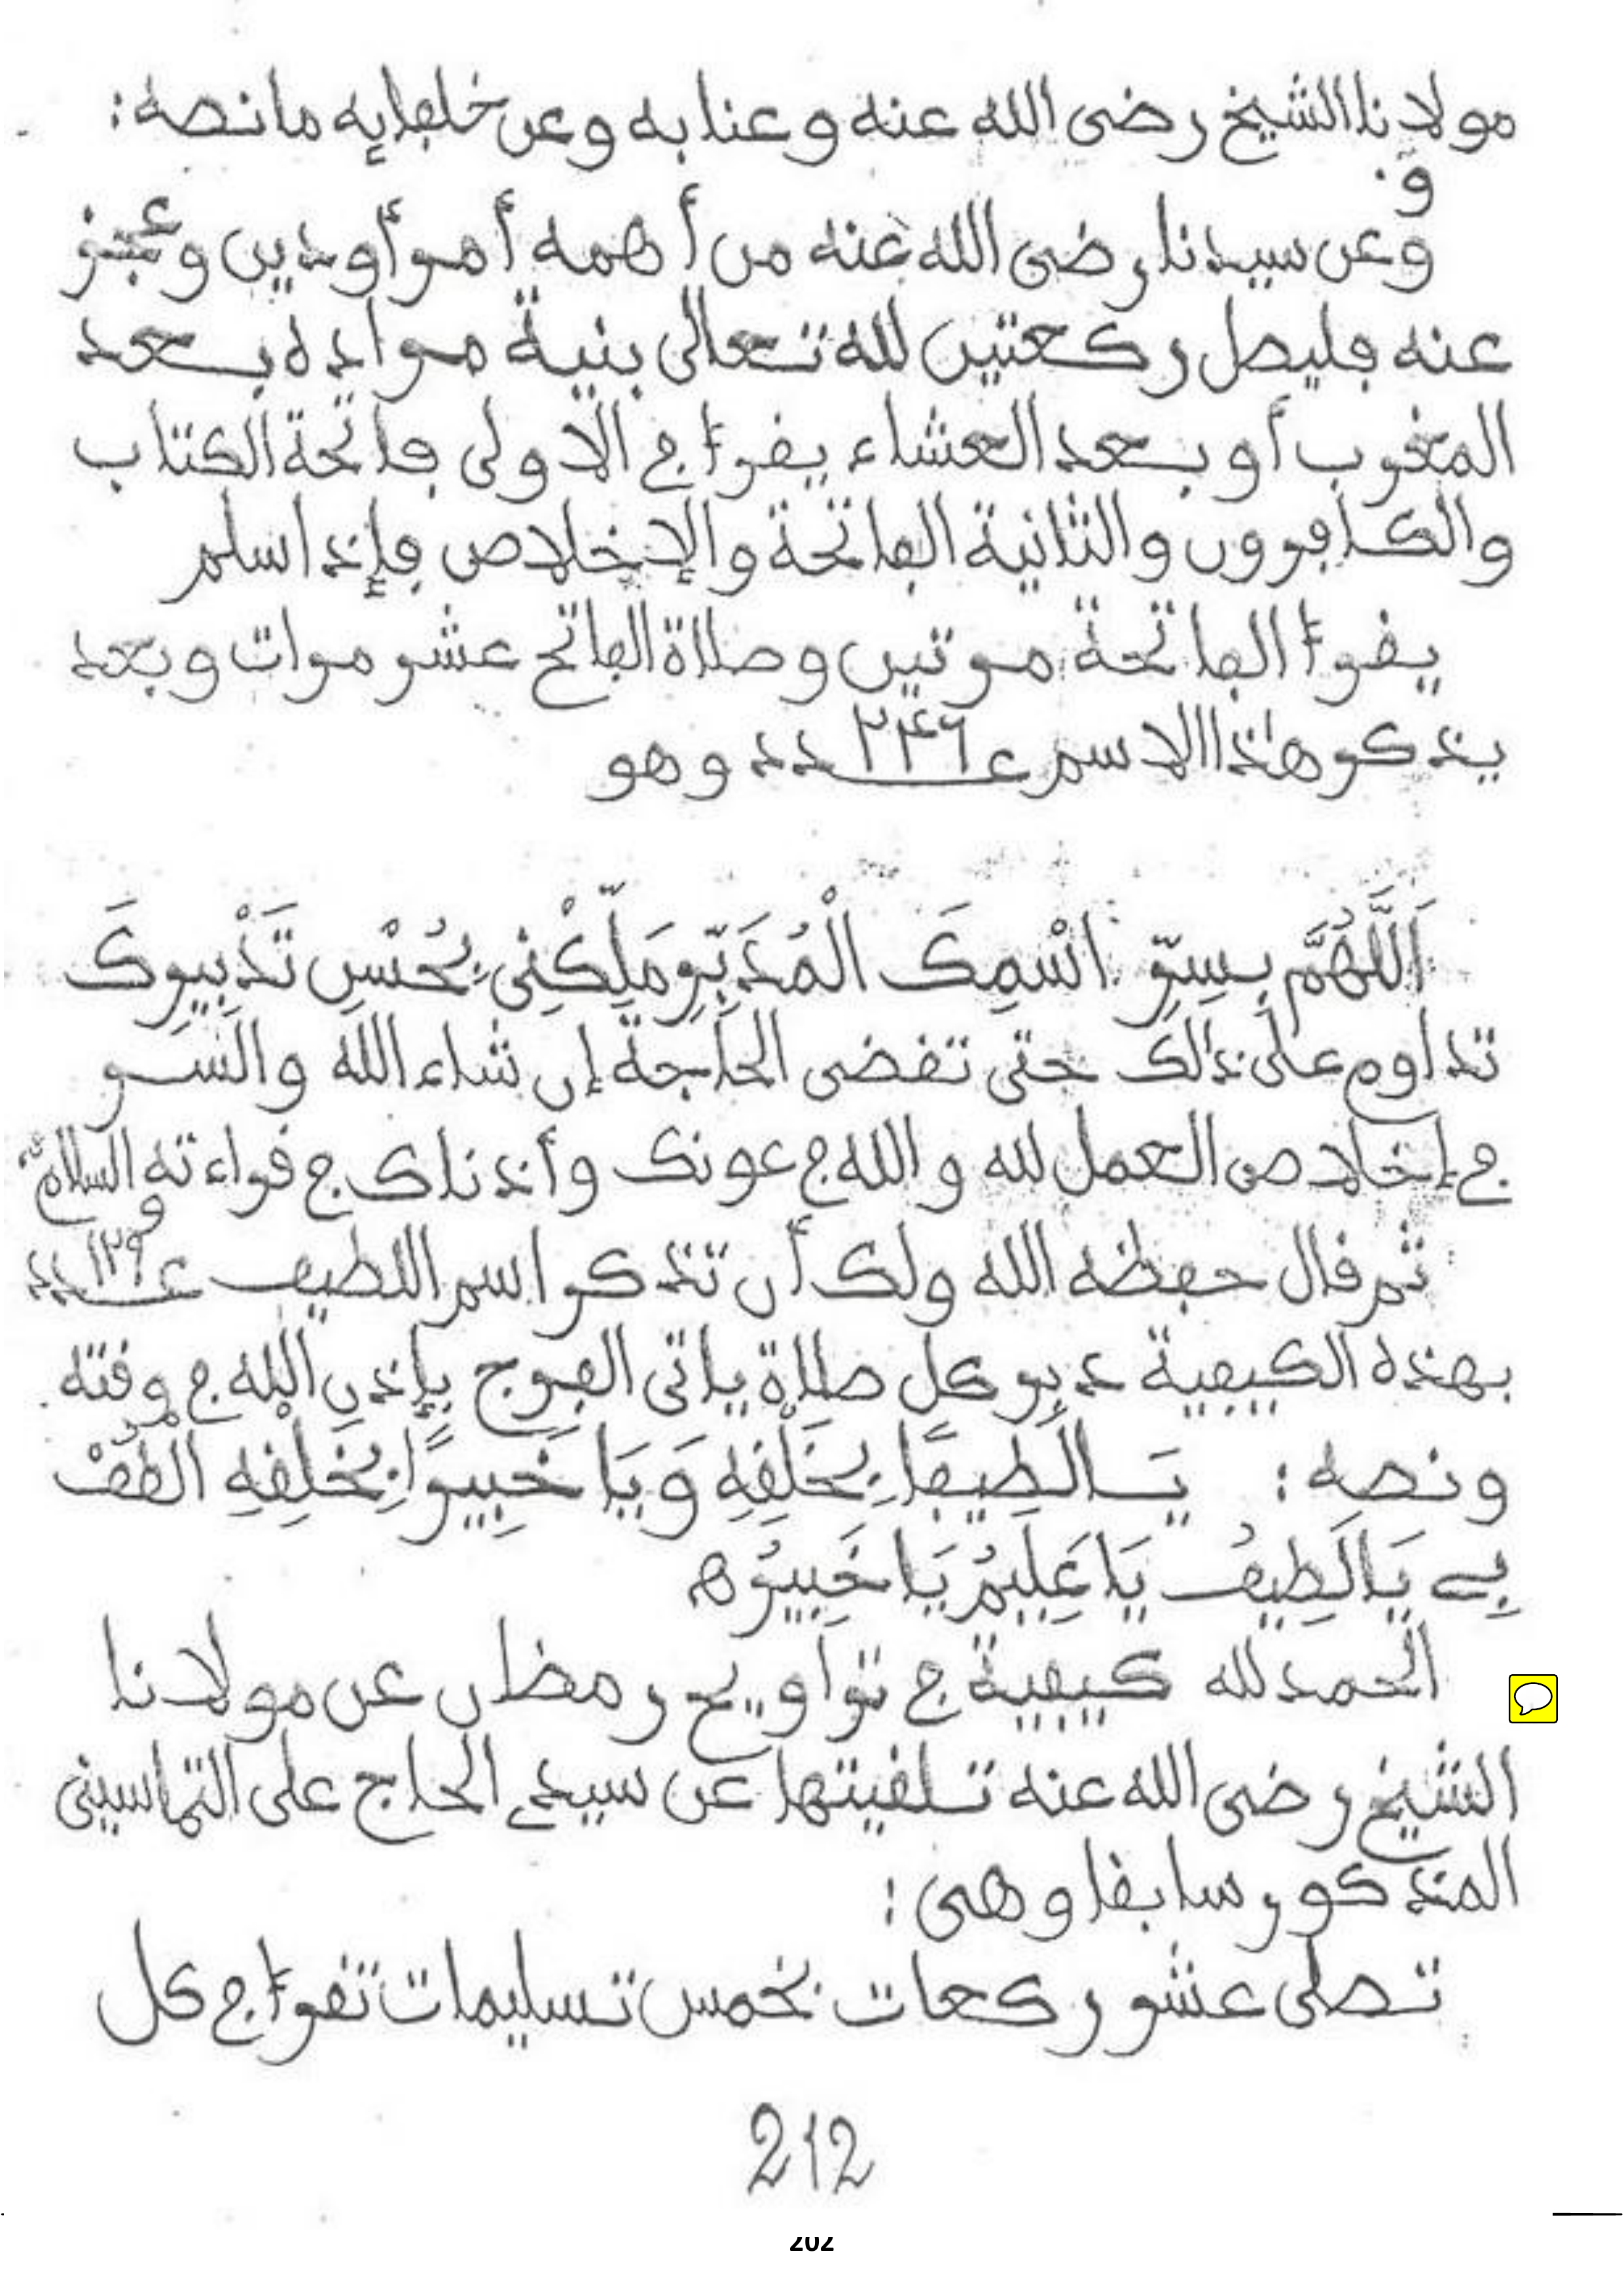 مولانا الشيخ رضى الله عنه وعنا به وعن خلفايه مانصه:
و
وعن سيدنا رضى الله عنه من أهمه أمر أو دين وعجز
عنه فليصل ركعتين لله تعالى بنية مراده بعد
المغرب أو بعد العشاء يقرأ في الاولى فاتحة الكتاب
والكافرون والثانية الفاتحة والإخلاص فإذا سلم
يقرأ الفاتحة مرتين وصلاة الفاتح عشر مرات وبعد
يذكر هذا الاسم عــ٢٤٦ــدد وهو
اَللَّهُمَّ بِسِرِّ اسْمِكَ الْمُدَبِّرِ مَلِّكْنِى بِحُسْنِ تَدْبِيرِكَ
تداوم على ذلك حتى تقضى الحاجة إن شاء الله والسر
في إخلاص العمل لله والله في عونك وأذناك في قراءته والسلام
ثم قال حفظه الله ولك أن تذكر اسم اللطيف عــ١٢٩ــدد
بهذه الكيفية دبر كل صلاة ياتى الفرج بإذن الله في وقته
ونصه: يَا لَطِيفًا بِخَلْقِهِ وَيَا خَبِيرًا بِخَلْقِهِ الْطُفْ
بِي يَا لَطِيفُ يَا عَلِيمُ يَا خَبِيرُ ه
الحمد لله كيفية في تراويح رمضان عن مولانا
الشيخ رضى الله عنه تلقيتها عن سيدي الحاج على التماسينى
المذكور سابقا وهى:
تصلى عشر ركعات بخمس تسليمات تقرأ في كل
212
202